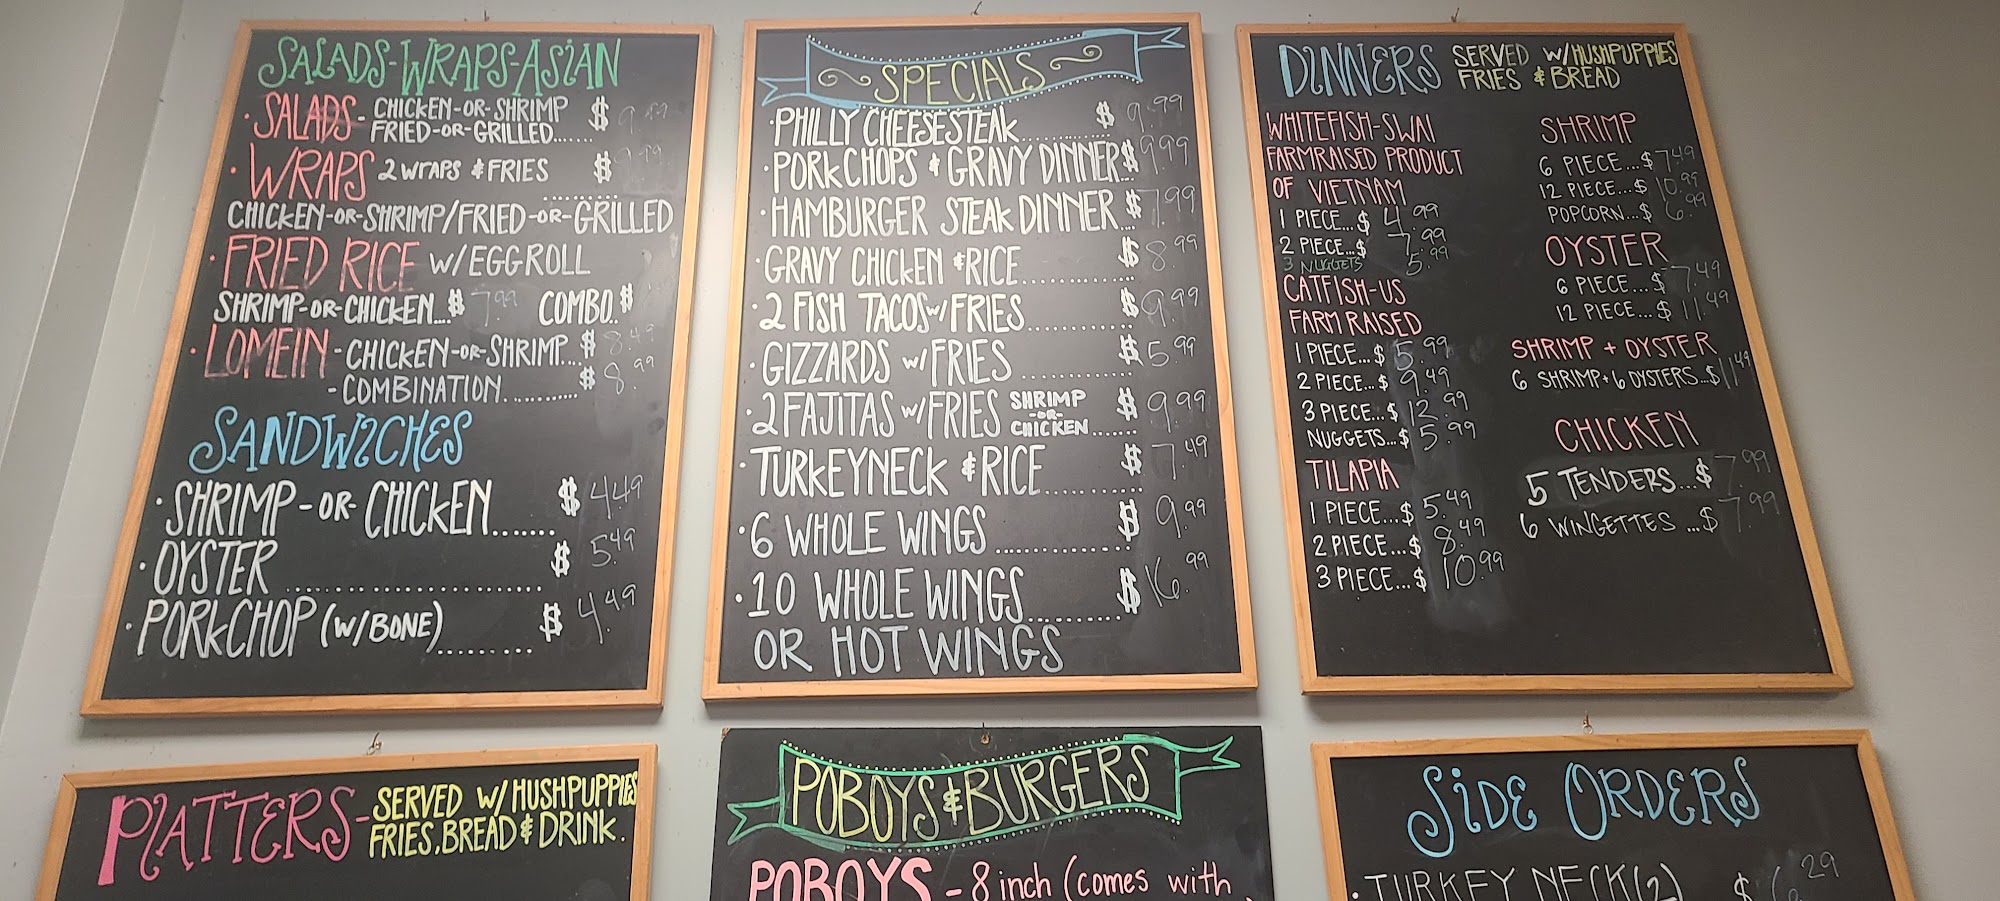 SALADS-WRAPS-ASIAN
· SALADS- CHICKEN-OR-SHRIMP $ 9.49
FRIED-OR-GRILLED......
· WRAPS 2 WRAPS & FRIES $ 9.99
........
CHICKEN-OR-SHRIMP/FRIED-OR-GRILLED
· FRIED RICE W/EGGROLL
SHRIMP-OR-CHICKEN...$ 7.99 COMBO..$
· LOMEIN - CHICKEN-OR-SHRIMP...$ 8.49
- COMBINATION..........$ 8.99
SANDWICHES
· SHRIMP-OR-CHICKEN....... $ 4.49
· OYSTER ........................ $ 5.49
· PORKCHOP (W/BONE)......... $ 4.49
SPECIALS
· PHILLY CHEESESTEAK........... $ 9.99
· PORKCHOPS & GRAVY DINNER... $ 9.99
· HAMBURGER STEAK DINNER... $ 7.99
· GRAVY CHICKEN & RICE........... $ 8.99
· 2 FISH TACOS W/ FRIES........... $ 9.99
· GIZZARDS W/ FRIES........... $ 5.99
· 2 FAJITAS W/ FRIES SHRIMP -OR- CHICKEN...... $ 9.99
· TURKEYNECK & RICE......... $ 7.49
· 6 WHOLE WINGS .............. $ 9.99
· 10 WHOLE WINGS.......... $ 16.99
OR HOT WINGS
DINNERS SERVED W/HUSHPUPPIES
FRIES & BREAD
WHITEFISH-SWAI
FARMRAISED PRODUCT
OF VIETNAM
1 PIECE...$ 4.99
2 PIECE...$ 7.99
3 NUGGETS 5.99
CATFISH-US
FARM RAISED
1 PIECE...$ 5.99
2 PIECE...$ 9.49
3 PIECE...$ 12.99
NUGGETS...$ 5.99
TILAPIA
1 PIECE...$ 5.49
2 PIECE...$ 8.49
3 PIECE...$ 10.99
SHRIMP
6 PIECE...$ 7.49
12 PIECE...$ 10.99
POPCORN...$ 6.99
OYSTER
6 PIECE...$ 7.49
12 PIECE...$ 11.49
SHRIMP + OYSTER
6 SHRIMP+6 OYSTERS...$ 11.49
CHICKEN
5 TENDERS...$ 7.99
6 WINGETTES ...$ 7.99
PLATTERS- SERVED W/HUSHPUPPIES
FRIES, BREAD & DRINK.
POBOYS & BURGERS
POBOYS - 8 inch (comes with
SIDE ORDERS
· TURKEY NECK (2) $ 6.29